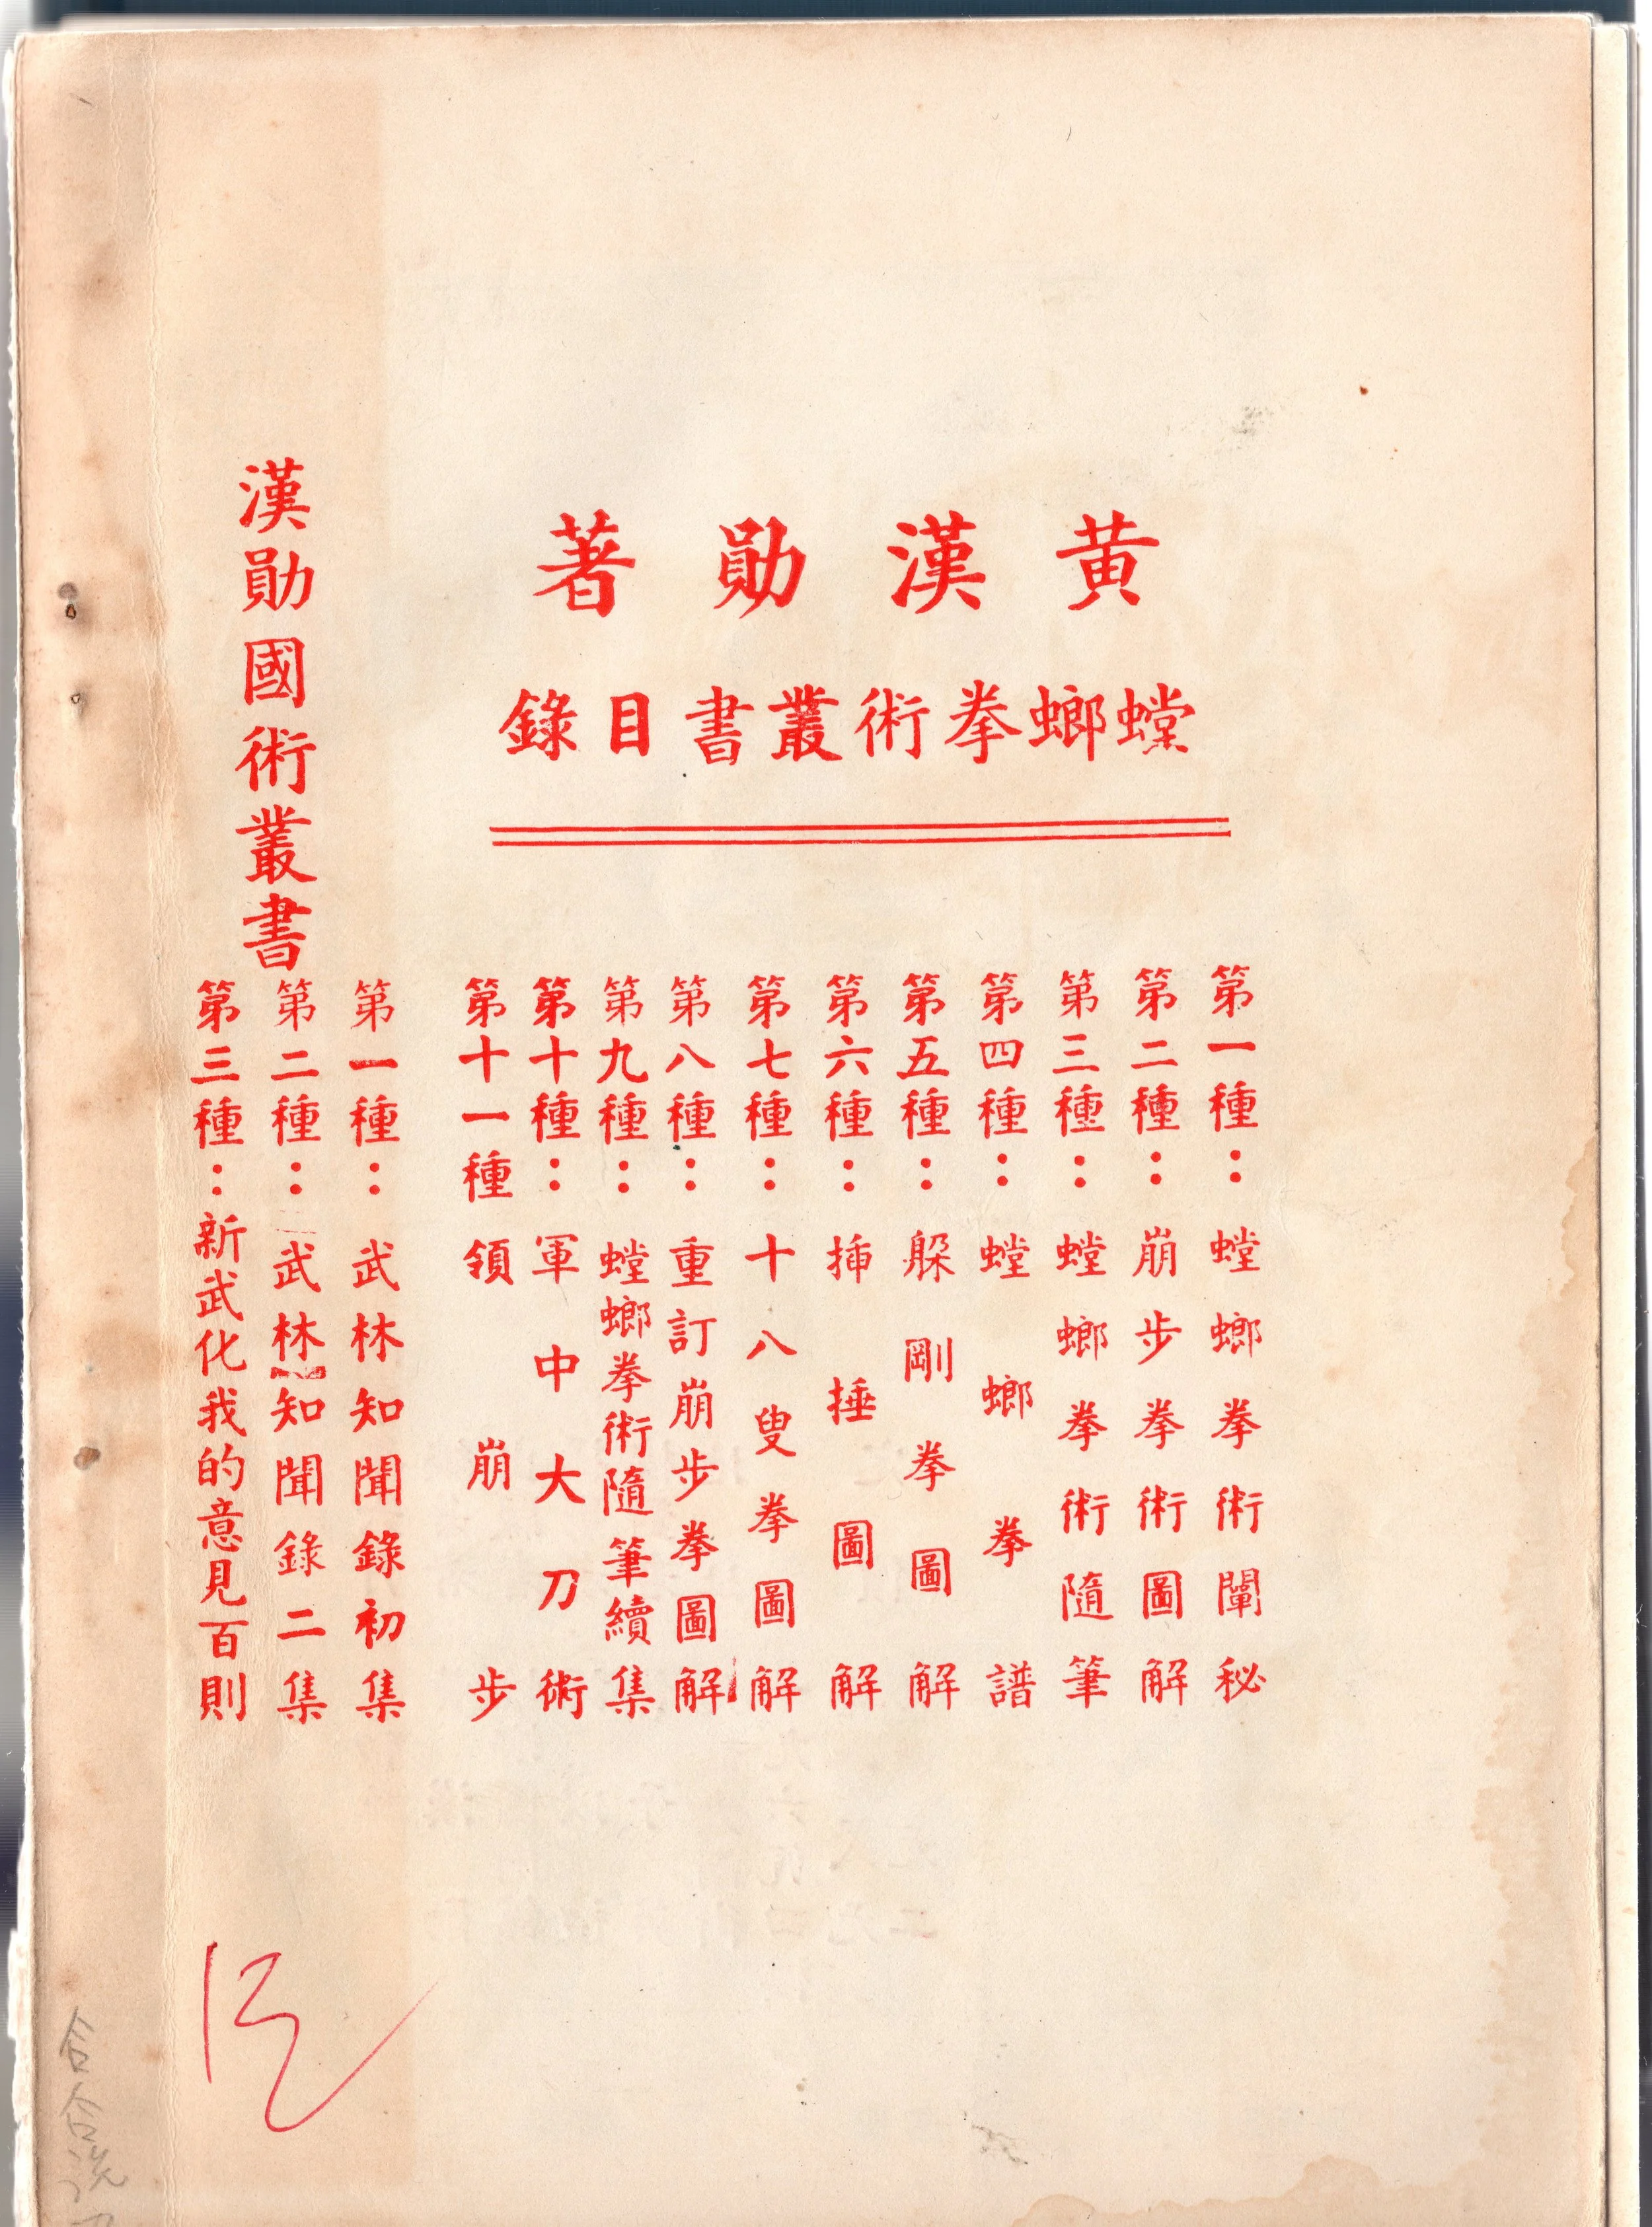 黃漢勛著
螳螂拳術叢書目錄
第一種：螳螂拳術闡秘
第二種：崩步拳術圖解
第三種：螳螂拳術隨筆
第四種：螳螂拳譜
第五種：躲剛拳圖解
第六種：插捶圖解
第七種：十八叟拳圖解
第八種：重訂崩步拳圖解
第九種：螳螂拳術隨筆續集
第十種：軍中大刀術
第十一種領崩步
漢勛國術叢書
第一種：武林知聞錄初集
第二種：武林知聞錄二集
第三種：新武化我的意見百則